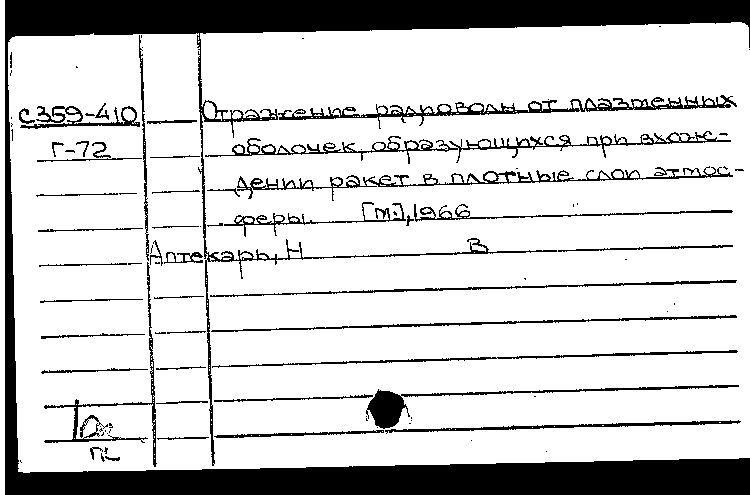 С359-410 Отражение радиоволн от плазменных
Г-72 оболочек, образующихся при вхож-
дении ракет в плотные слои атмос-
феры. [М.], 1966
Аптекарь, Н В